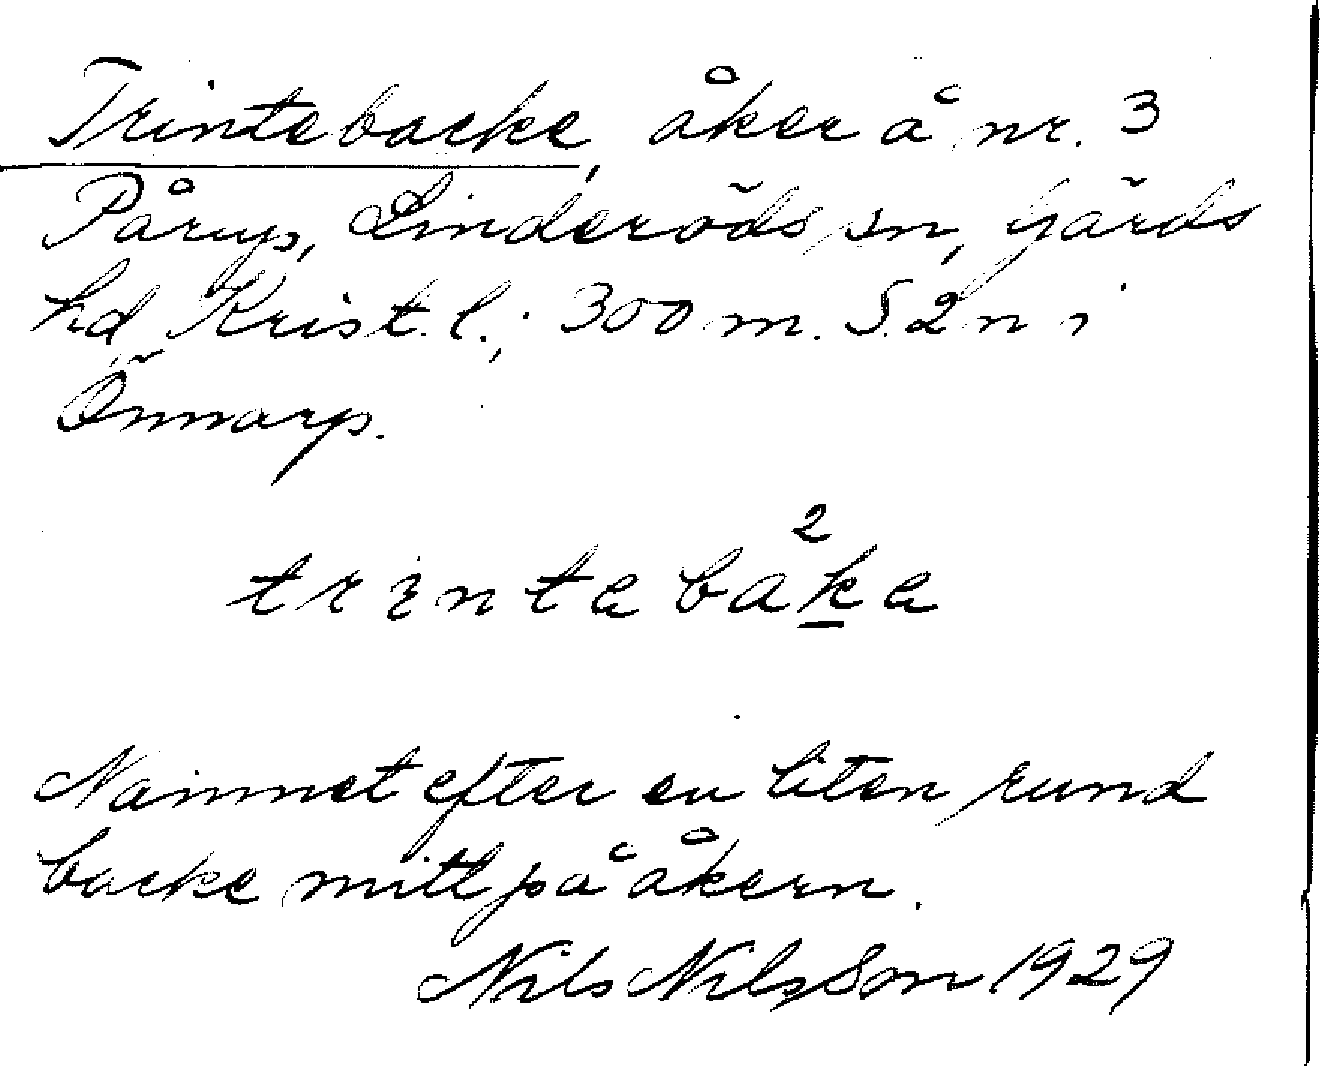 Trintebacke, åker å nr. 3
Pårup, Linderöds sn, Gärds
hd, Krist. l.; 300 m. S. 2 n i
Önnarp.
2
trintabaka
Namnet efter en liten rund
backe mitt på åkern.
Nils Nilsson 1929